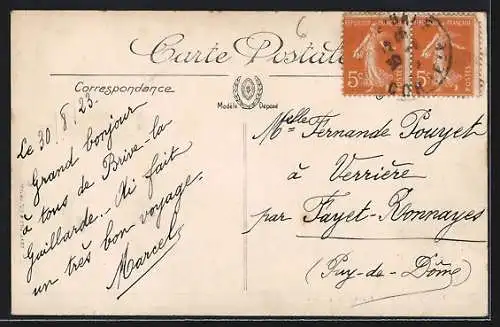 6
Carte Postale
RÉPUBLIQUE FRANÇAISE
5c
POSTES
5c
POSTES
Correspondance
Modèle Déposé
Le 30/8/23.
Grand bonjour
à tous de Brive-la
Gaillarde. Ai fait
un très bon voyage.
Marcel
Melle Fernande Pouyet
à Verrière
par Fayet-Ronnayes
(Puy-de-Dôme)